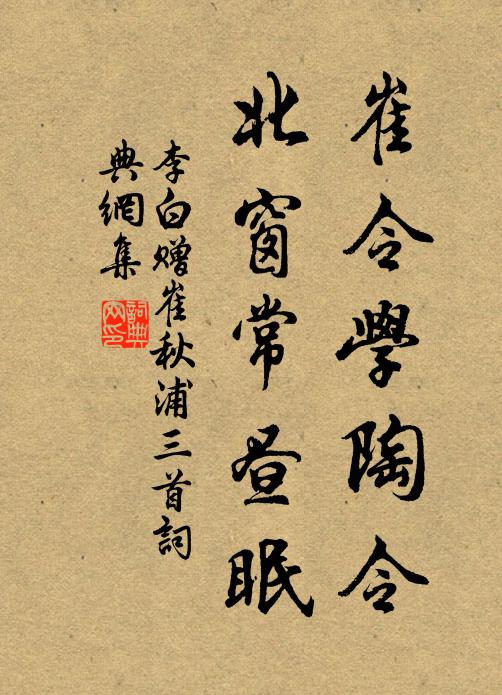 崔令學陶令
北窗常昼眠
李白赠崔秋浦三首詞
典網集
詞典
网印